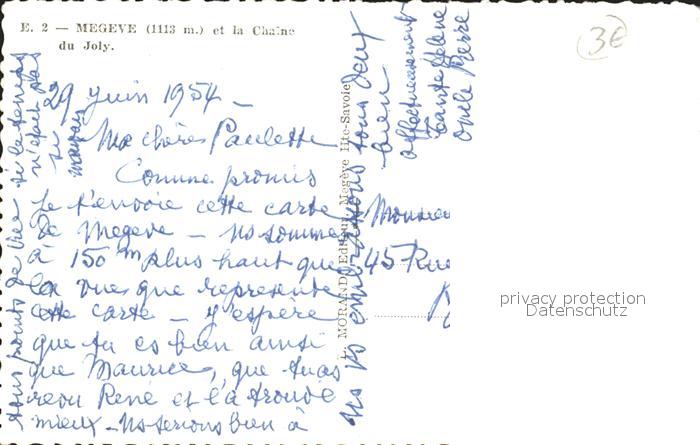 E. 2 — MEGÈVE (1113 m.) et la Chaîne
du Joly.
3€
29 juin 1954 —
Ma chère Paulette
Comme promis
je t'envoie cette carte
de Megève — ns sommes
à 150 m plus haut que
la vue que représente
cette carte — j'espère
que tu es bien ainsi
que Maurice, que tu as
reçu René et l'a trouvé
mieux — ns serions bien à
tous points de vue si le temps
n'était pas
si
mauvais
Ns vs embrassons tous deux
bien
affectueusement
Tante Hélène
Oncle Pierre
L. MORAND, Editeur, Megève Hte-Savoie
Monsieur
45 Rue
privacy protection
Datenschutz